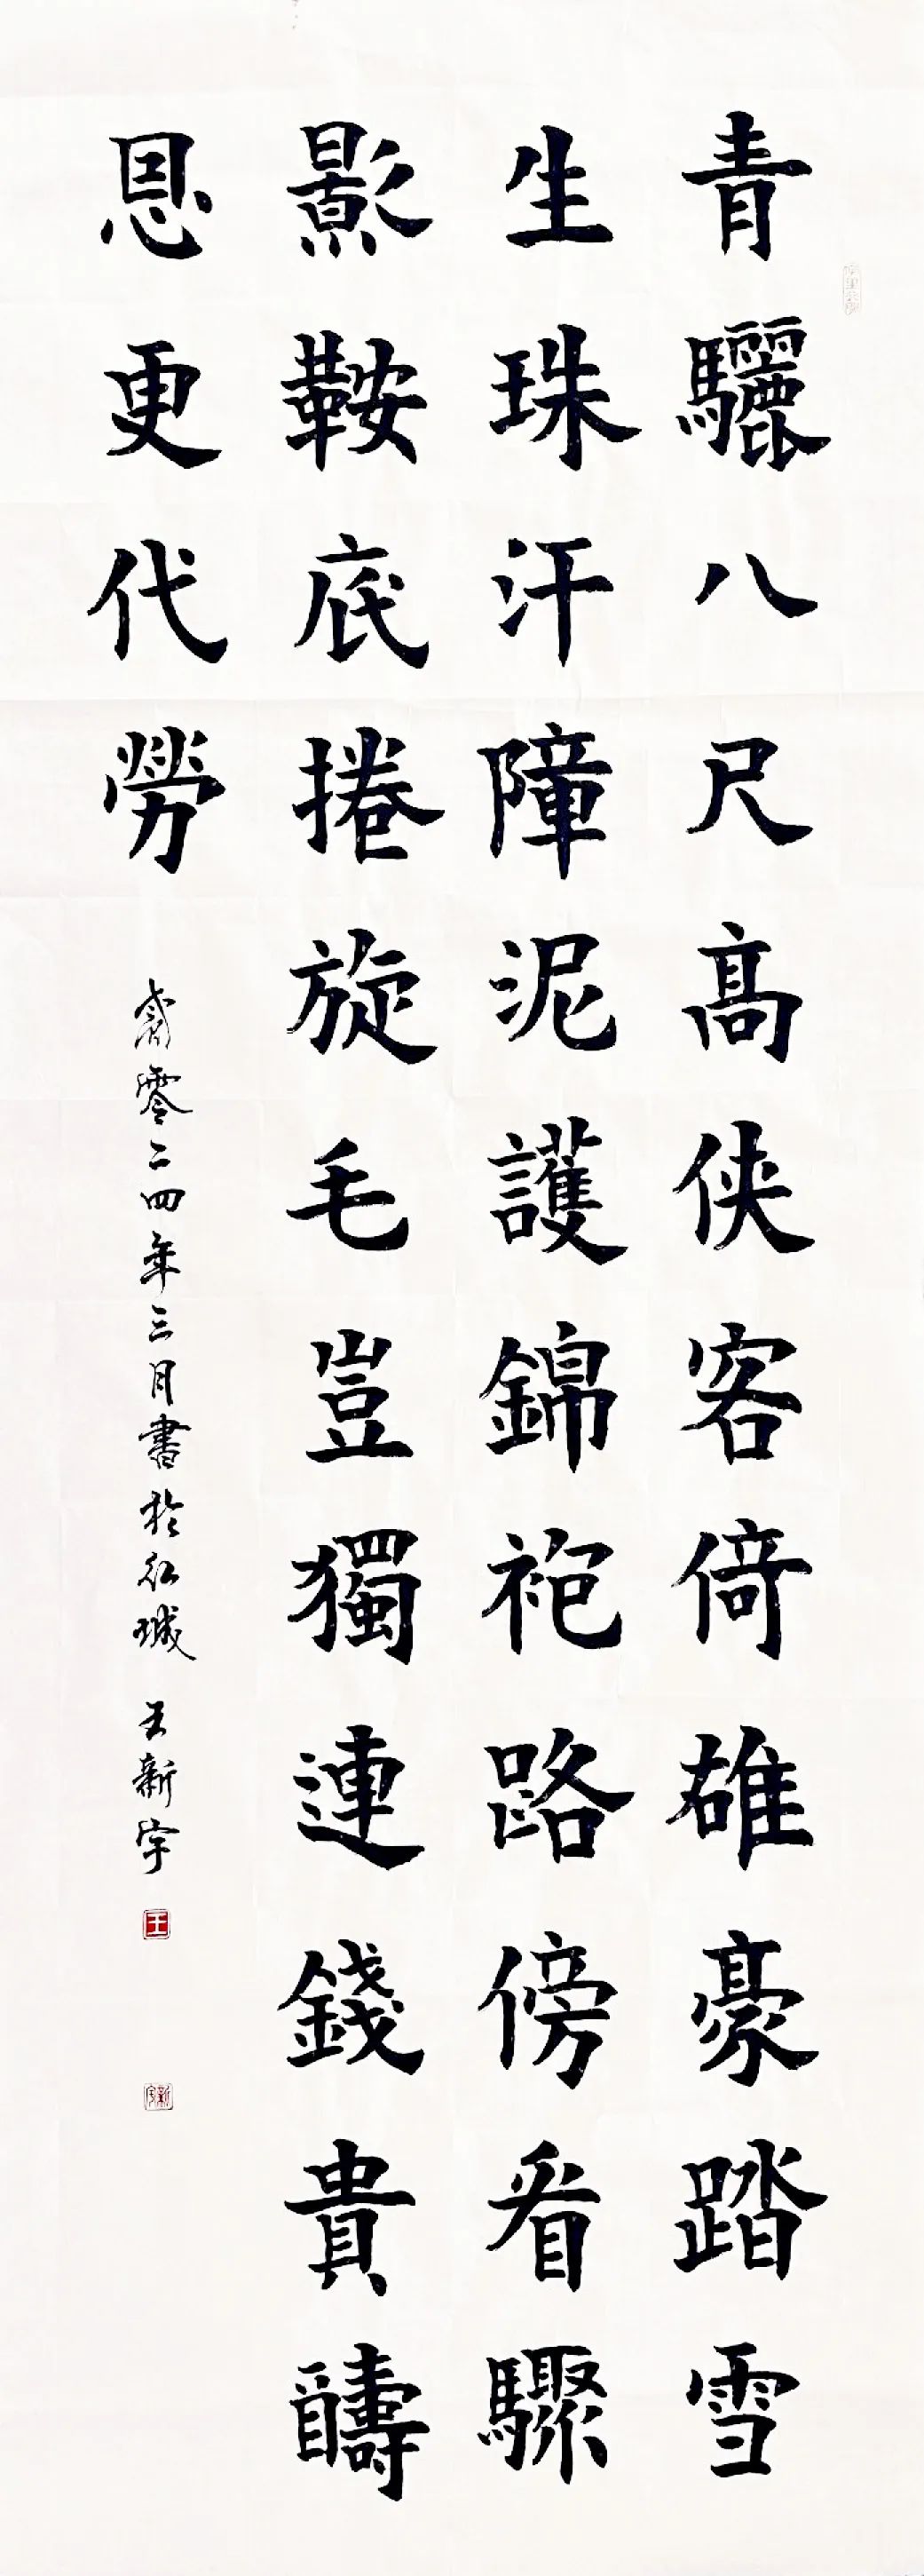 青驪八尺髙侠客倚雄豪踏雪
生珠汗障泥護錦袍路傍看驟
影鞍底捲旋毛豈獨連錢貴醻
恩更代勞
貳零二四年三月書於城 王新宇
王
新宇